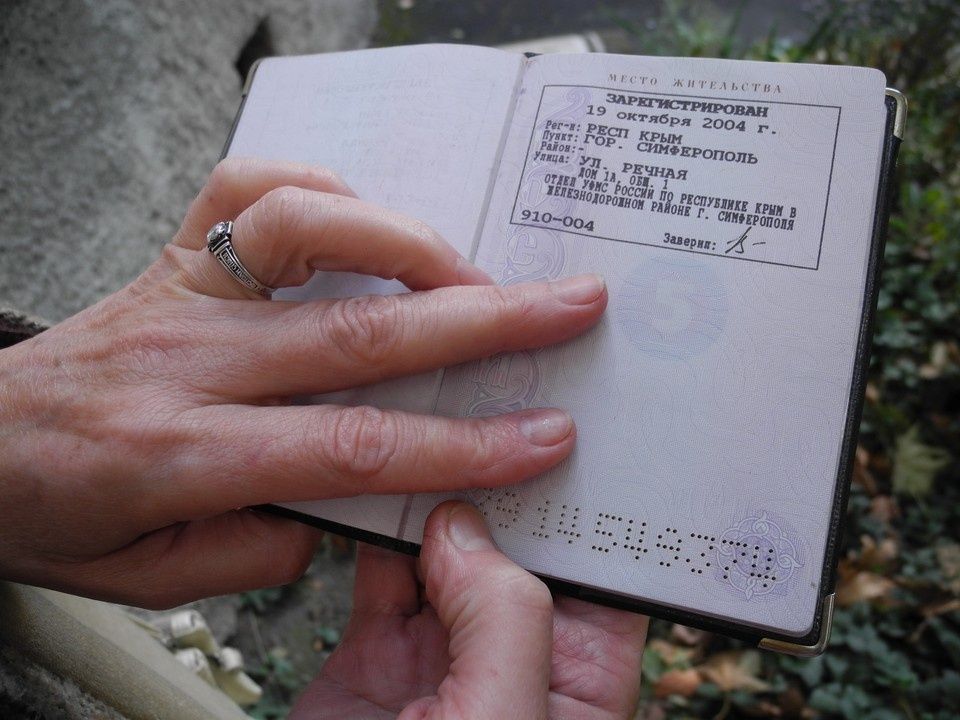 МЕСТО ЖИТЕЛЬСТВА
ЗАРЕГИСТРИРОВАН
19 октября 2004 г.
Рег-н: РЕСП КРЫМ
Пункт: ГОР. СИМФЕРОПОЛЬ
Район: -
Улица: УЛ. РЕЧНАЯ
ДОМ 1А, ОБЩ. 1
ОТДЕЛ УФМС РОССИИ ПО РЕСПУБЛИКЕ КРЫМ В
ЖЕЛЕЗНОДОРОЖНОМ РАЙОНЕ Г. СИМФЕРОПОЛЯ
910-004
Заверил:
14 549370